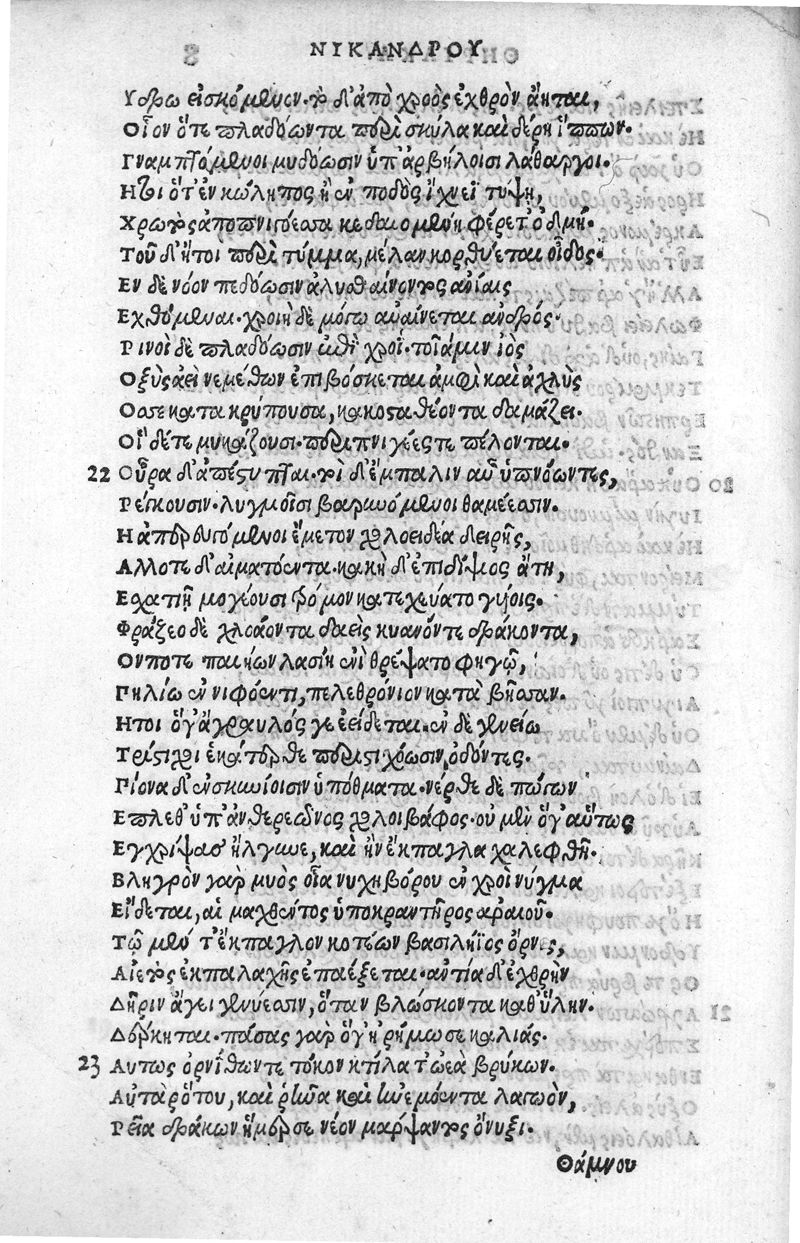 ΝΙΚΑΝΔΡΟΥ
Υδρω εἰσκόμενον· τὸ δ' ἀπὸ χροὸς ἐχθρὸν ἄηται,
Οἷον ὅτε πλαδόωντα περὶ σκύλα καὶ δέρη ἵππων·
Γναμπτόμενοι μυδόωσιν ὑπ' ἀρβήλοισι λάθαργοι·
Ητοι ὅτ' ἐν κώληπος ἢ ἐν ποδὸς ἴχνεϊ τυψῃ,
Χρωτὸς ἀποπνιγόεσσα κεδαιομένη φέρετ' ὀδμή·
Τοῦ δ' ἤτοι περὶ τύμμα, μέλαν κορθύεται οἶδος·
Εν δὲ νόον πεδόωσιν ἀλυσθαίνοντος ἀνίαις
Εχθόμεναι· χροιὴ δὲ μόγω αὐαίνεται ἀνδρός·
Ρινοὶ δὲ πλαδόωσιν ἐπὶ χροΐ· τοῖά μιν ἰὸς
Οξὺς ἀεὶ νεμέθων ἐπιβόσκεται ἀμφὶ καὶ ἀχλὺς
Οσσε κατακρύπουσα, κακοσταθέοντα δαμάζει·
Οἵ δέτε μυκάζουσι· περιπνιγέες τε πέλονται·
22 Οὖρα δ' ἀπέστυπται· τότὲ δ' ἔμπαλιν αὖ ὑπνόωντες,
Ρέγκουσιν· λυγμοῖσι βαρυνόμενοι θαμέεσσιν·
Η ἀπερευγόμενοι ἔμετον χολοειδέα δειρῆς,
Αλλοτε δ' αἱματόεντα· κακὴ δ' ἐπιδίψιος ἄτη,
Εσχατιῇ μογέουσι τρόμον κατεχεύατο γυίοις·
Φράζεο δὲ χλοάοντα δαεὶς κυανόν τε δράκοντα,
Ονποτε παιήων λασίῃ ἐνὶ θρέψατο φηγῷ,
Πηλίω ἐν νιφόεντι, πελεθρόνιον κατὰ βῆσσαν·
Ητοι ὅγ' ἄγραυλός γε εἴδεται· ἐν δὲ γενείω
Τρίστιχοι ἑκάτερθε περιστιχόωσιν ὀδόντες·
Πίονα δ' ἐν σκυνίοισιν ὑπόθματα· νέρθε δὲ πώγων
Επλεθ' ὑπ' ἀνθερεῶνος χολοιβάφος· οὐ μὲν ὅγ' αὕτως
Εγχρίψασ' ἤλγυνε, καὶ ἢν ἔκπαγλα χαλεφθῇ·
Βληχρὸν γὰρ μυὸς οἷα νυχηβόρου ἐν χροῒ νύγμα
Εἴδεται, αἱ μαχθέντος ὑποκραντῆρος ἀραιοῦ·
Τῷ μέν τ' ἔκπαγλον κοτέων βασιλήϊος ὄρνις,
Αἰετὸς ἐκπαλαχῆς ἐπαέξεται· ἀντία δ' ἐχθρὴν
Δῆριν ἄγει γενύεσσιν, ὅταν βλώσκοντα καθ' ὕλην·
Δέρκηται· πάσας γὰρ ὅγ' ἠρήμωσε καλιάς·
23 Αυτως ὀρνίθων τε τόκον κτίλα τ' ὠεὰ βρύκων·
Αὐτὰρ ὁ του, καὶ ῥῆνα καὶ ἠνεμόεντα λαγωὸν,
Ρεῖα δράκων ἤμερσε νέον μαρψαντος ὄνυξι·
Θάμνου